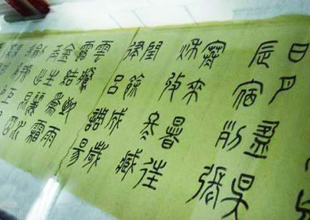 日月盈昃
辰宿列張
寒來暑往
秋收冬藏
閏餘成歲
律呂調陽
雲騰致雨
露結為霜
金生麗水